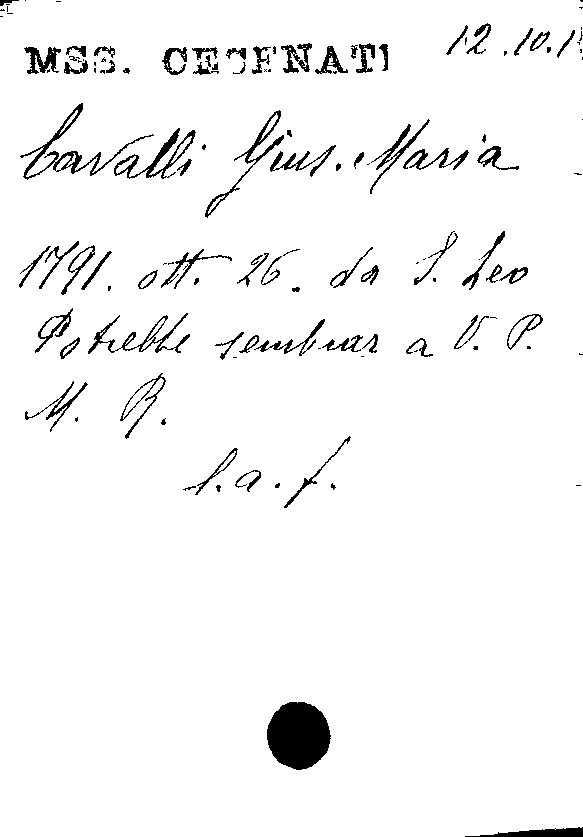 MSS. CESENATI 12.10.1
Cavalli Gius. Maria
1791. ott. 26. da S. Leo
Potrebbe sembrar a V. P.
M. R.
l. a. f.